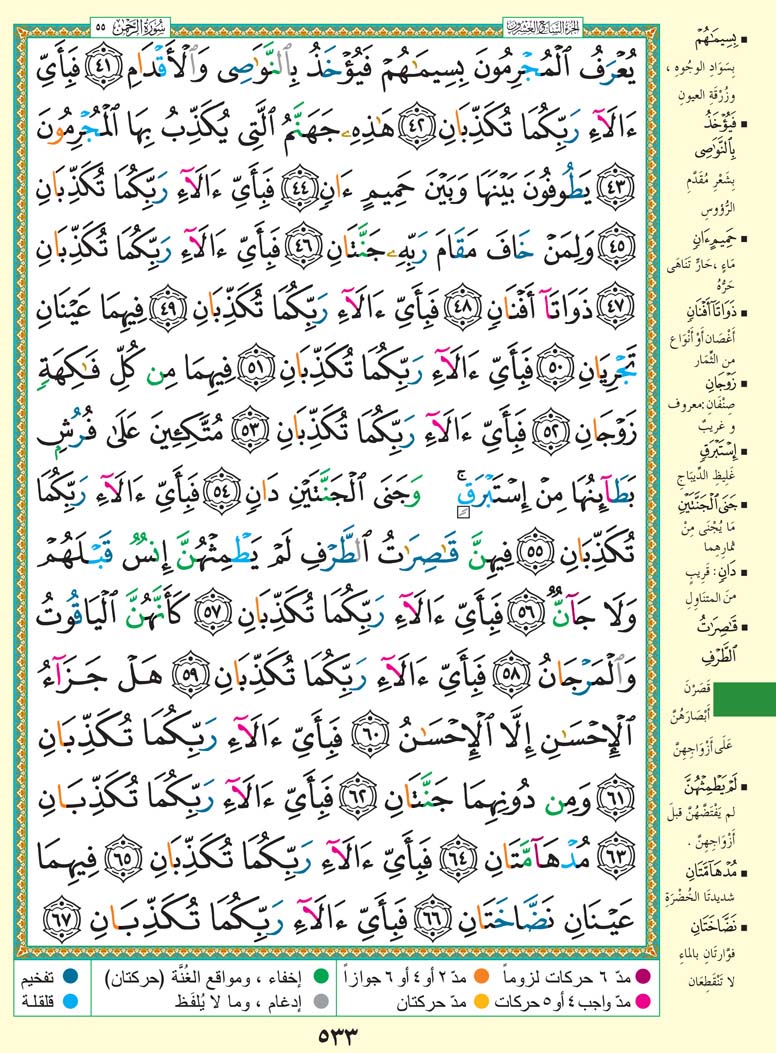 الجزء السابع والعشرون
سورة الرحمن ٥٥
يُعْرَفُ ٱلْمُجْرِمُونَ بِسِيمَـٰهُمْ فَيُؤْخَذُ بِٱلنَّوَٰصِى وَٱلْأَقْدَامِ ٤١ فَبِأَىِّ
ءَالَآءِ رَبِّكُمَا تُكَذِّبَانِ ٤٢ هَـٰذِهِۦ جَهَنَّمُ ٱلَّتِى يُكَذِّبُ بِهَا ٱلْمُجْرِمُونَ
٤٣ يَطُوفُونَ بَيْنَهَا وَبَيْنَ حَمِيمٍ ءَانٍ ٤٤ فَبِأَىِّ ءَالَآءِ رَبِّكُمَا تُكَذِّبَانِ
٤٥ وَلِمَنْ خَافَ مَقَامَ رَبِّهِۦ جَنَّتَانِ ٤٦ فَبِأَىِّ ءَالَآءِ رَبِّكُمَا تُكَذِّبَانِ
٤٧ ذَوَاتَآ أَفْنَانٍ ٤٨ فَبِأَىِّ ءَالَآءِ رَبِّكُمَا تُكَذِّبَانِ ٤٩ فِيهِمَا عَيْنَانِ
تَجْرِيَانِ ٥٠ فَبِأَىِّ ءَالَآءِ رَبِّكُمَا تُكَذِّبَانِ ٥١ فِيهِمَا مِن كُلِّ فَـٰكِهَةٍ
زَوْجَانِ ٥٢ فَبِأَىِّ ءَالَآءِ رَبِّكُمَا تُكَذِّبَانِ ٥٣ مُتَّكِـِٔينَ عَلَىٰ فُرُشٍۭ
بَطَآئِنُهَا مِنْ إِسْتَبْرَقٍ ۚ وَجَنَى ٱلْجَنَّتَيْنِ دَانٍ ٥٤ فَبِأَىِّ ءَالَآءِ رَبِّكُمَا
تُكَذِّبَانِ ٥٥ فِيهِنَّ قَـٰصِرَٰتُ ٱلطَّرْفِ لَمْ يَطْمِثْهُنَّ إِنسٌ قَبْلَهُمْ
وَلَا جَآنٌّ ٥٦ فَبِأَىِّ ءَالَآءِ رَبِّكُمَا تُكَذِّبَانِ ٥٧ كَأَنَّهُنَّ ٱلْيَاقُوتُ
وَٱلْمَرْجَانُ ٥٨ فَبِأَىِّ ءَالَآءِ رَبِّكُمَا تُكَذِّبَانِ ٥٩ هَلْ جَزَآءُ
ٱلْإِحْسَـٰنِ إِلَّا ٱلْإِحْسَـٰنُ ٦٠ فَبِأَىِّ ءَالَآءِ رَبِّكُمَا تُكَذِّبَانِ
٦١ وَمِن دُونِهِمَا جَنَّتَانِ ٦٢ فَبِأَىِّ ءَالَآءِ رَبِّكُمَا تُكَذِّبَانِ
٦٣ مُدْهَآمَّتَانِ ٦٤ فَبِأَىِّ ءَالَآءِ رَبِّكُمَا تُكَذِّبَانِ ٦٥ فِيهِمَا
عَيْنَانِ نَضَّاخَتَانِ ٦٦ فَبِأَىِّ ءَالَآءِ رَبِّكُمَا تُكَذِّبَانِ ٦٧
بِسِيمَـٰهُمْ
بِسَوَادِ الوجوهِ ،
وزُرْقَةِ العيونِ
فَيُؤْخَذُ
بِٱلنَّوَٰصِى
بِشَعْرِ مُقَدَّمِ
الرُّؤُوسِ
حَمِيمٍ ءَانٍ
مَاءٍ ، حَارٍّ تَنَاهَى
حَرُّهُ
ذَوَاتَآ أَفْنَانٍ
أَغْصَانٍ أَوْ أَنْوَاعٍ
من الثِّمَار
زَوْجَانِ
صِنْفَانِ: معروف
و غريبٌ
إِسْتَبْرَقٍ
غَلِيظِ الدِّيبَاجِ
جَنَى ٱلْجَنَّتَيْنِ
مَا يُجْنَى مِنْ
ثمارِهما
دَانٍ: قَرِيبٍ
منَ المتنَاوِلِ
قَـٰصِرَٰتُ
ٱلطَّرْفِ
قَصَرْنَ
أَبْصَارَهُنَّ
عَلَى أَزْوَاجِهِنَّ
لَمْ يَطْمِثْهُنَّ
لم يَفْتَضَّهُنَّ قبلَ
أَزْوَاجِهِنَّ .
مُدْهَآمَّتَانِ
شديدتَا الخُضْرَةِ
نَضَّاخَتَانِ
فَوَّارتَانِ بالماءِ
لا تَنْقَطِعَان
مدّ ٦ حركات لزوماً مدّ ٢ أو ٤ أو ٦ جوازاً إخفاء ، ومواقع الغُنَّة (حركتان) تفخيم
مدّ واجب ٤ أو ٥ حركات مدّ حركتان إدغام ، وما لا يُلفَظ قلقلة
٥٣٣